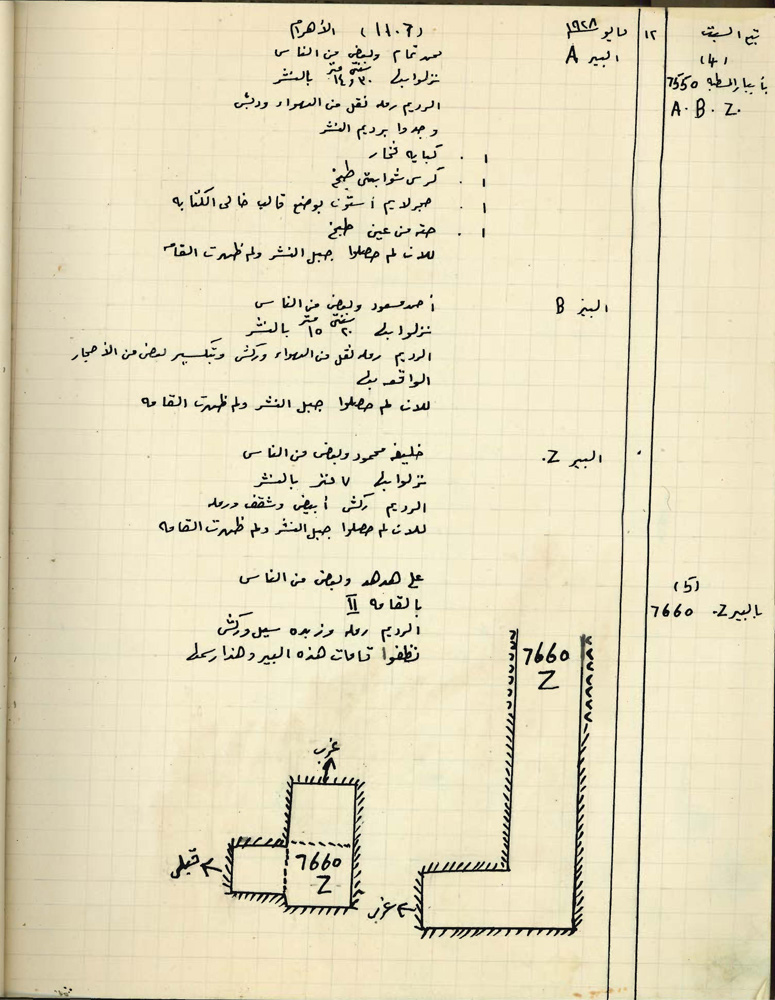 تبع السبت ١٢ مايو ١٩٢٨ (١١٠٦) الأهرام
(4)
بأبيار المسطبة 7550
A. B. Z.
البير A
محمد تمام وبعض من الناس
نزلوا بها ٣٠ سنتى و ١٤ متر بالنشر
الرديم رمله نقل من الهواء ودبش
وجدوا برديم النشر
١ . كبايه فخار
١ . كرسى شوابتى طبخ
١ . حجر لايم أستون بوضع قالب خالى الكتابه
١ . حته من عين طبخ
للان لم حصلوا جبل النشر ولم ظهرت القامه
البير B
أحمد مسعود وبعض من الناس
نزلوا بها ٢٠ سنتى ١٥ متر بالنشر
الرديم رمله نقل من الهواء وركش وتكسير بعض من الأحجار
الواقعه بها
للان لم حصلوا جبل النشر ولم ظهرت القامه
البير Z.
خليفه محمود وبعض من الناس
نزلوا بها ٧ متر بالنشر
الرديم ركش أبيض وشقف ورمله
للان لم حصلوا جبل النشر ولم ظهرت القامه
(5)
بالبير Z. 7660
على هدهد وبعض من الناس
بالقامه II
الرديم رمله وزبده سيل وركش
نظفوا قامات هذه البير وهذا رسمها
7660
Z
غرب
7660
Z
قبلى
غرب